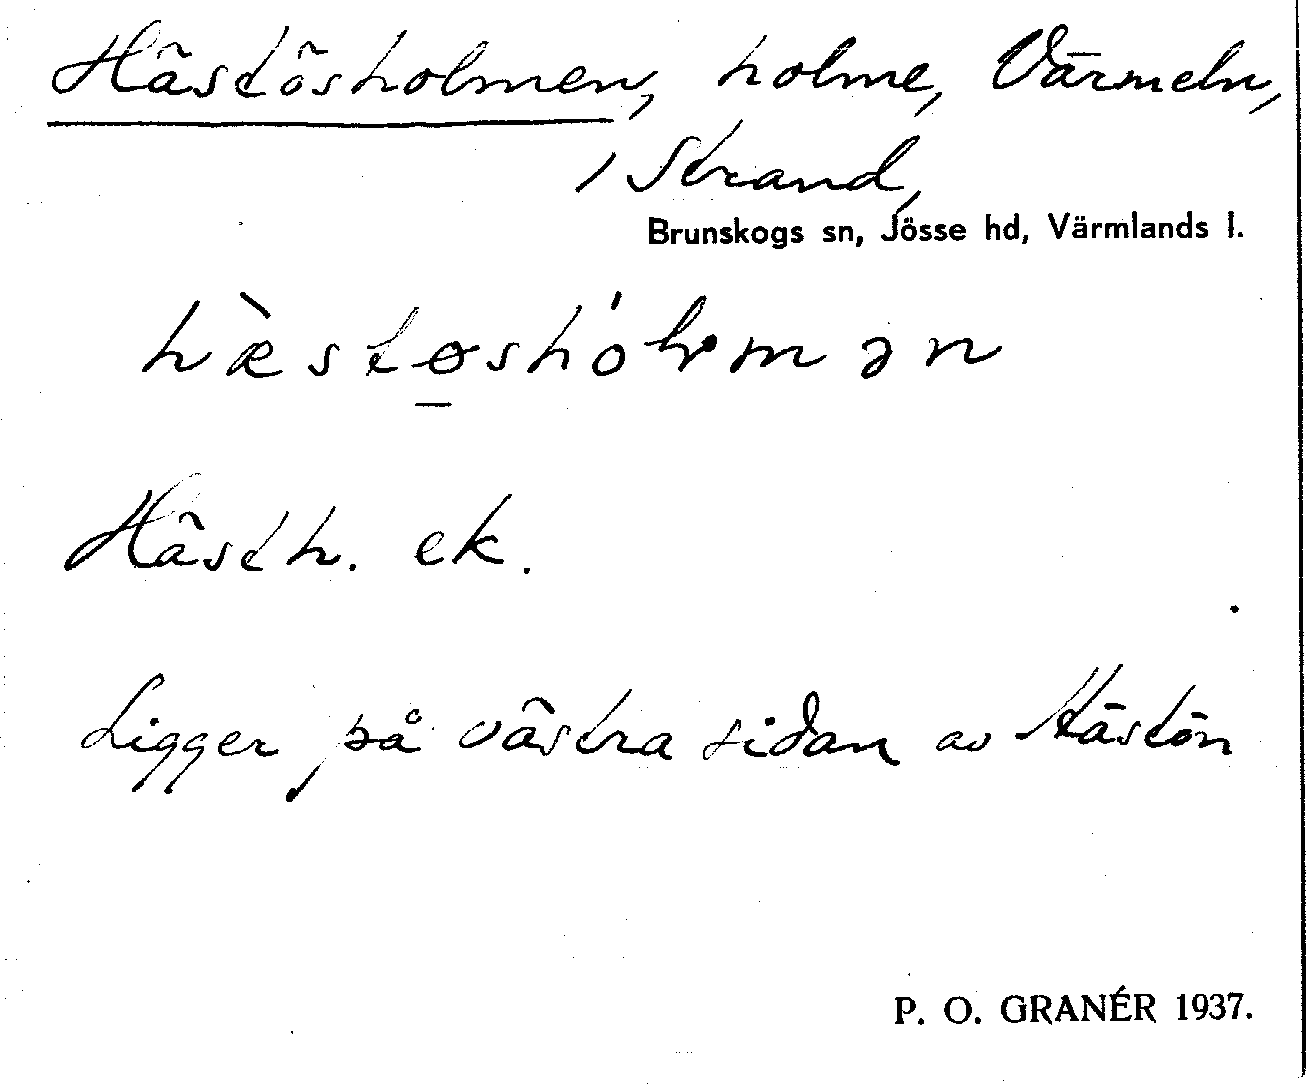 Hästösholmen, holme, Värmeln,
/ Strand,
Brunskogs sn, Jösse hd, Värmlands l.
hæ̀støshólmən
Hästh. ek.
Ligger på västra sidan av Hästön
P. O. GRANÉR 1937.